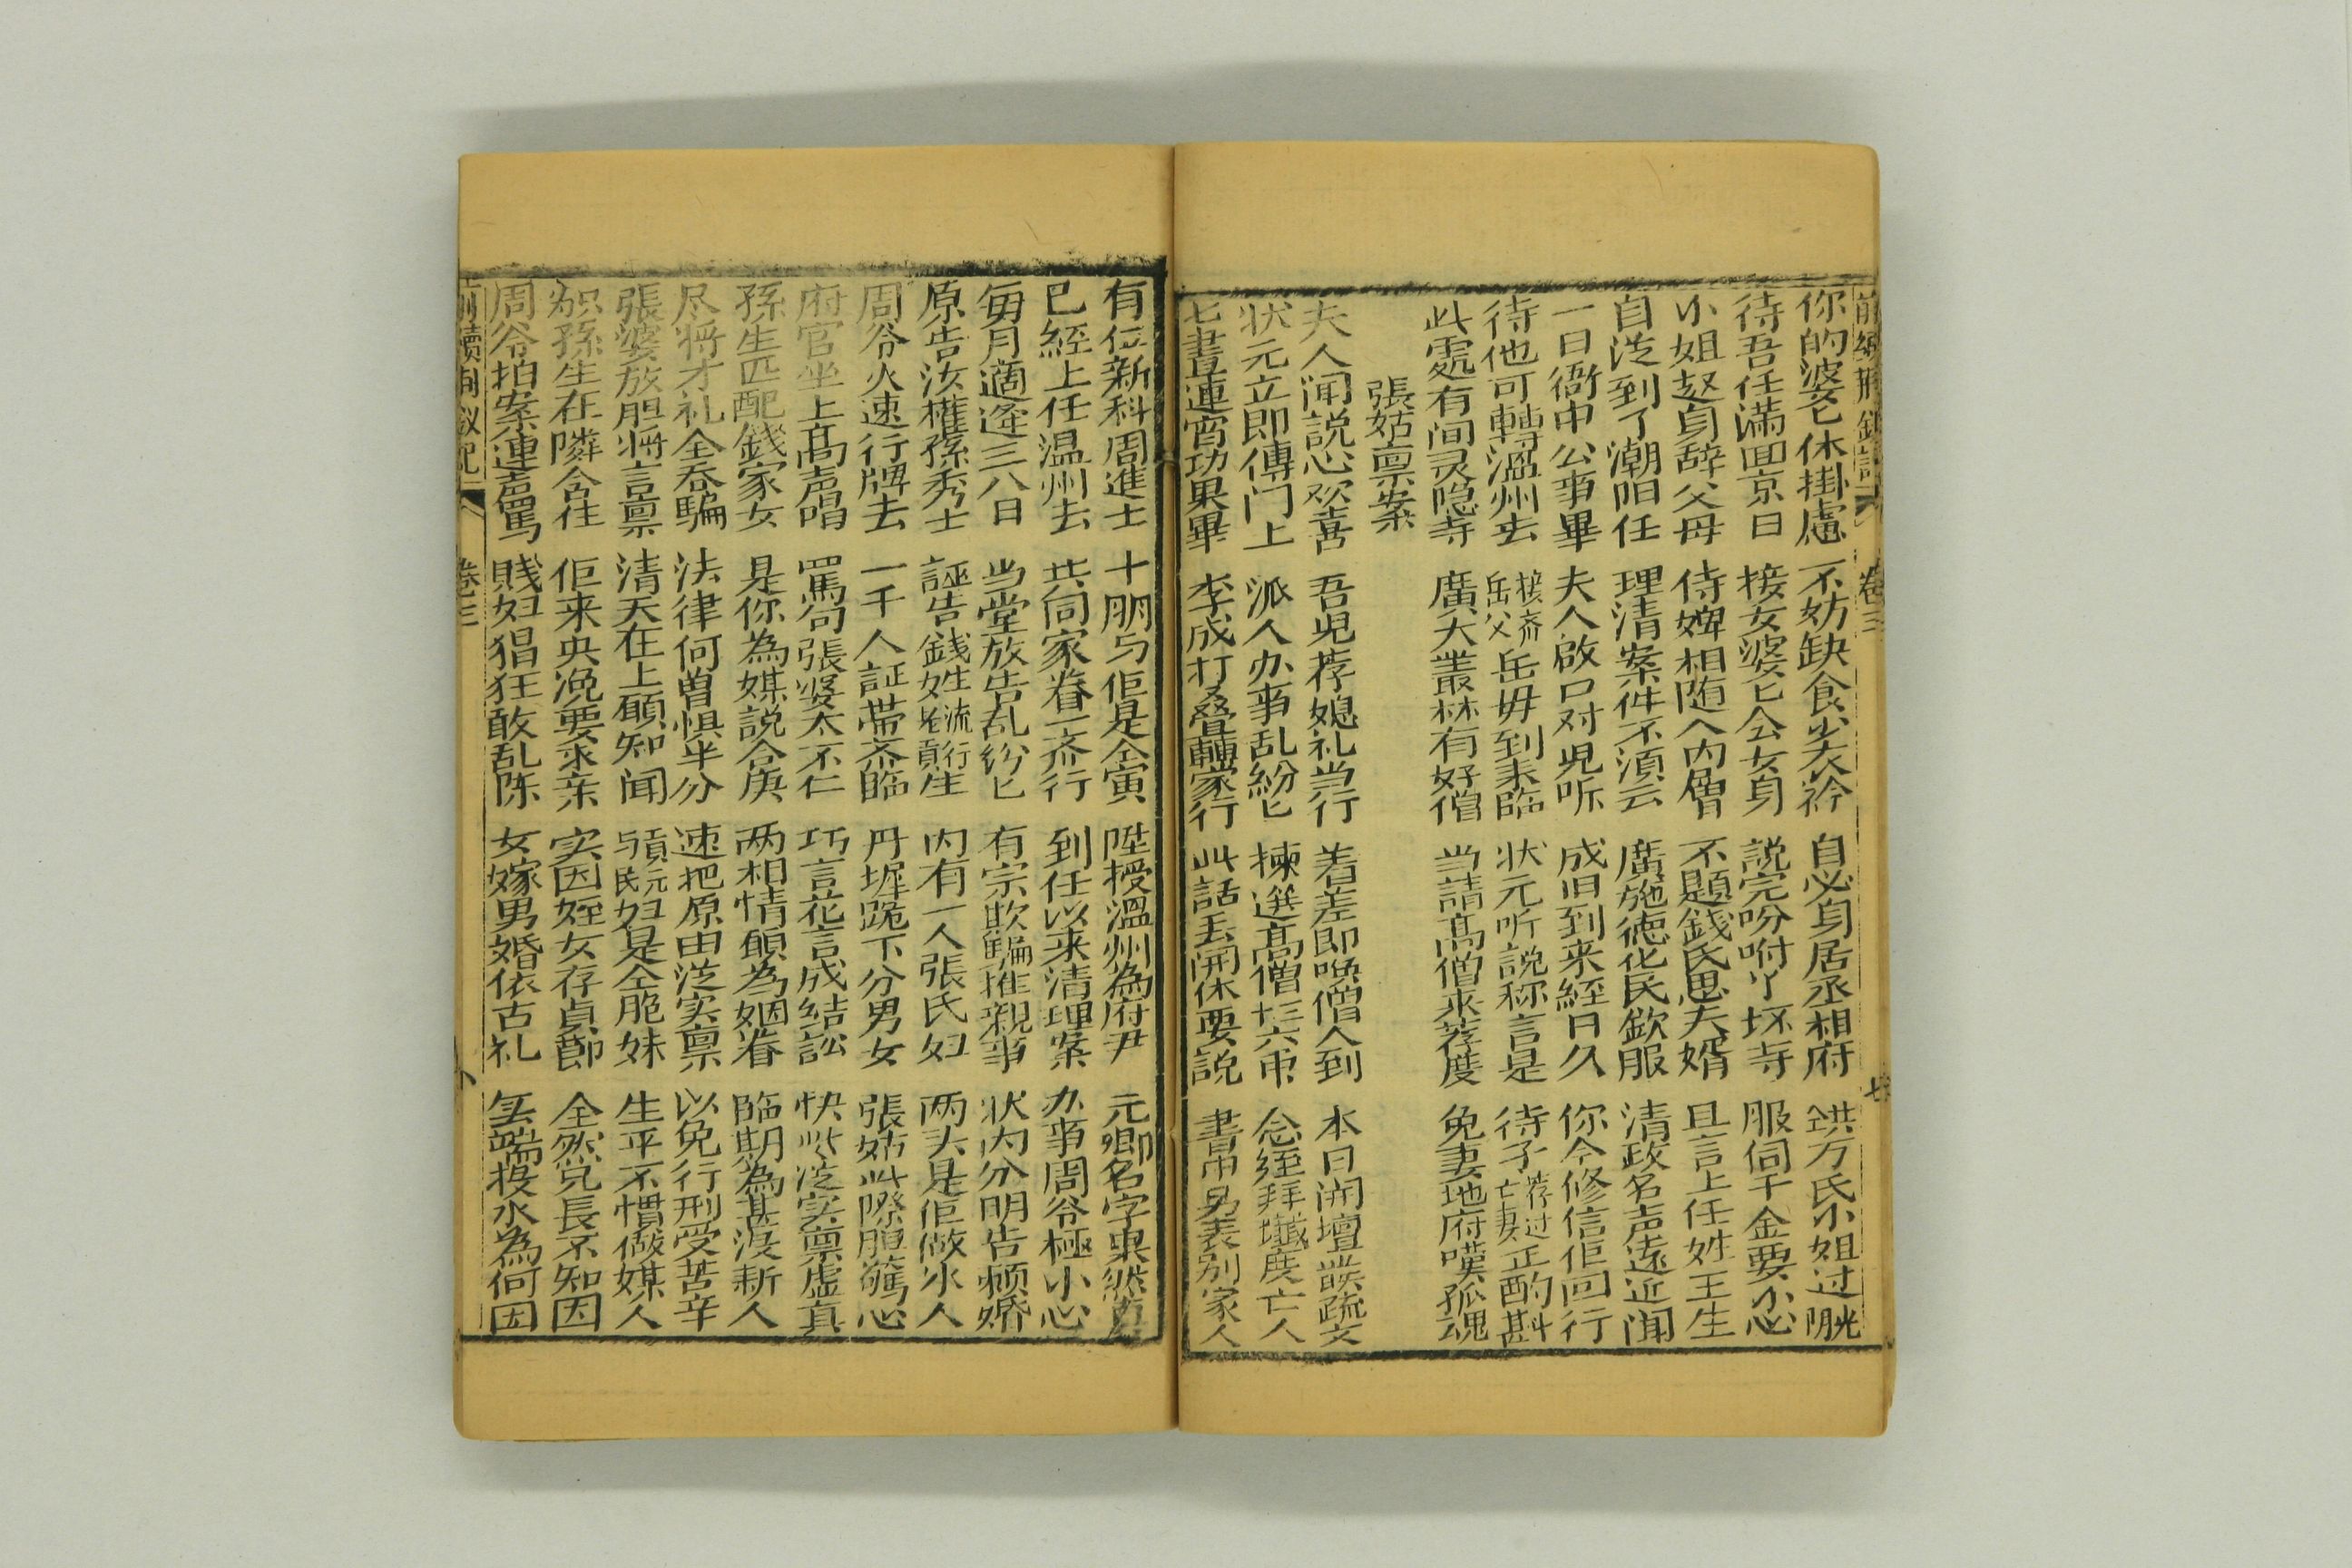 你的婆匕休掛慮　不妨缺食少衣衿　自必身居丞相府　䟫万氏小姐过胱
待吾任滿回京日　接女婆匕会女身　説完吩咐丫环寺　服伺千金要小心
小姐起身辞父母　侍婢相随入内層　不題錢氏思夫婿　且言上任姓王生
自从到了潮阳任　理清案件不須云　廣施徳化民欽服　清政名声遠近聞
一日衙中公事畢　夫人啟口对児听　成旧到来經日久　你今修信佢回行
待他可轉溫州去　接齐岳父岳毋到来臨　状元听説称言是　待子荐过亡妻正酌斟
此處有间灵隐寺　廣大叢林有好僧　当請髙僧来荐度　免妻地府嘆孤魂
張姑稟案
夫人闻説心欢喜　吾児荐媳礼当行　着差即喚僧人到　本日開壇發疏文
状元立即傳门上　派人办事乱紛匕　揀選髙僧卅六甲　念經拜懺度亡人
七晝連宵功果畢　李成打叠轉家行　此話丟開休要説　書中另表别家人
有位新科周進士　十朋与佢是仝寅　陞授溫州為府尹　元卿名字果然真
已經上任温州去　共同家眷一齐行　到任以来清理案　办事周爷極小心
每月適逢三八日　当堂放告乱纷匕　有宗欺騙推親事　状内分明告頼婚
原告汝權孫秀士　誣告錢姓流行是貢生　内有一人張氏妇　两头是佢做氷人
周爷火速行牌去　一千人証帶齐臨　丹墀跪下分男女　張姑此際胆驚心
府官坐上髙声唱　罵句張婆太不仁　巧言花言成结訟　快些从实稟虚真
孫生匹配錢家女　是你為媒説合庚　两相情願為姻眷　臨期為甚没新人
尽将才礼全吞騙　法律何曽惧半分　速把原由从实禀　以免行刑受苦辛
張婆放胆將言禀　清天在上願知闻　貢元与民妇是仝胞妹　生平不慣做媒人
祇孫生在隣舍住　佢来央浼要求亲　实因姪女存貞節　全然兄長不知因
周爷拍案連声罵　賎妇猖狂敢乱陈　女嫁男婚依古礼　無端投水為何因
卷三